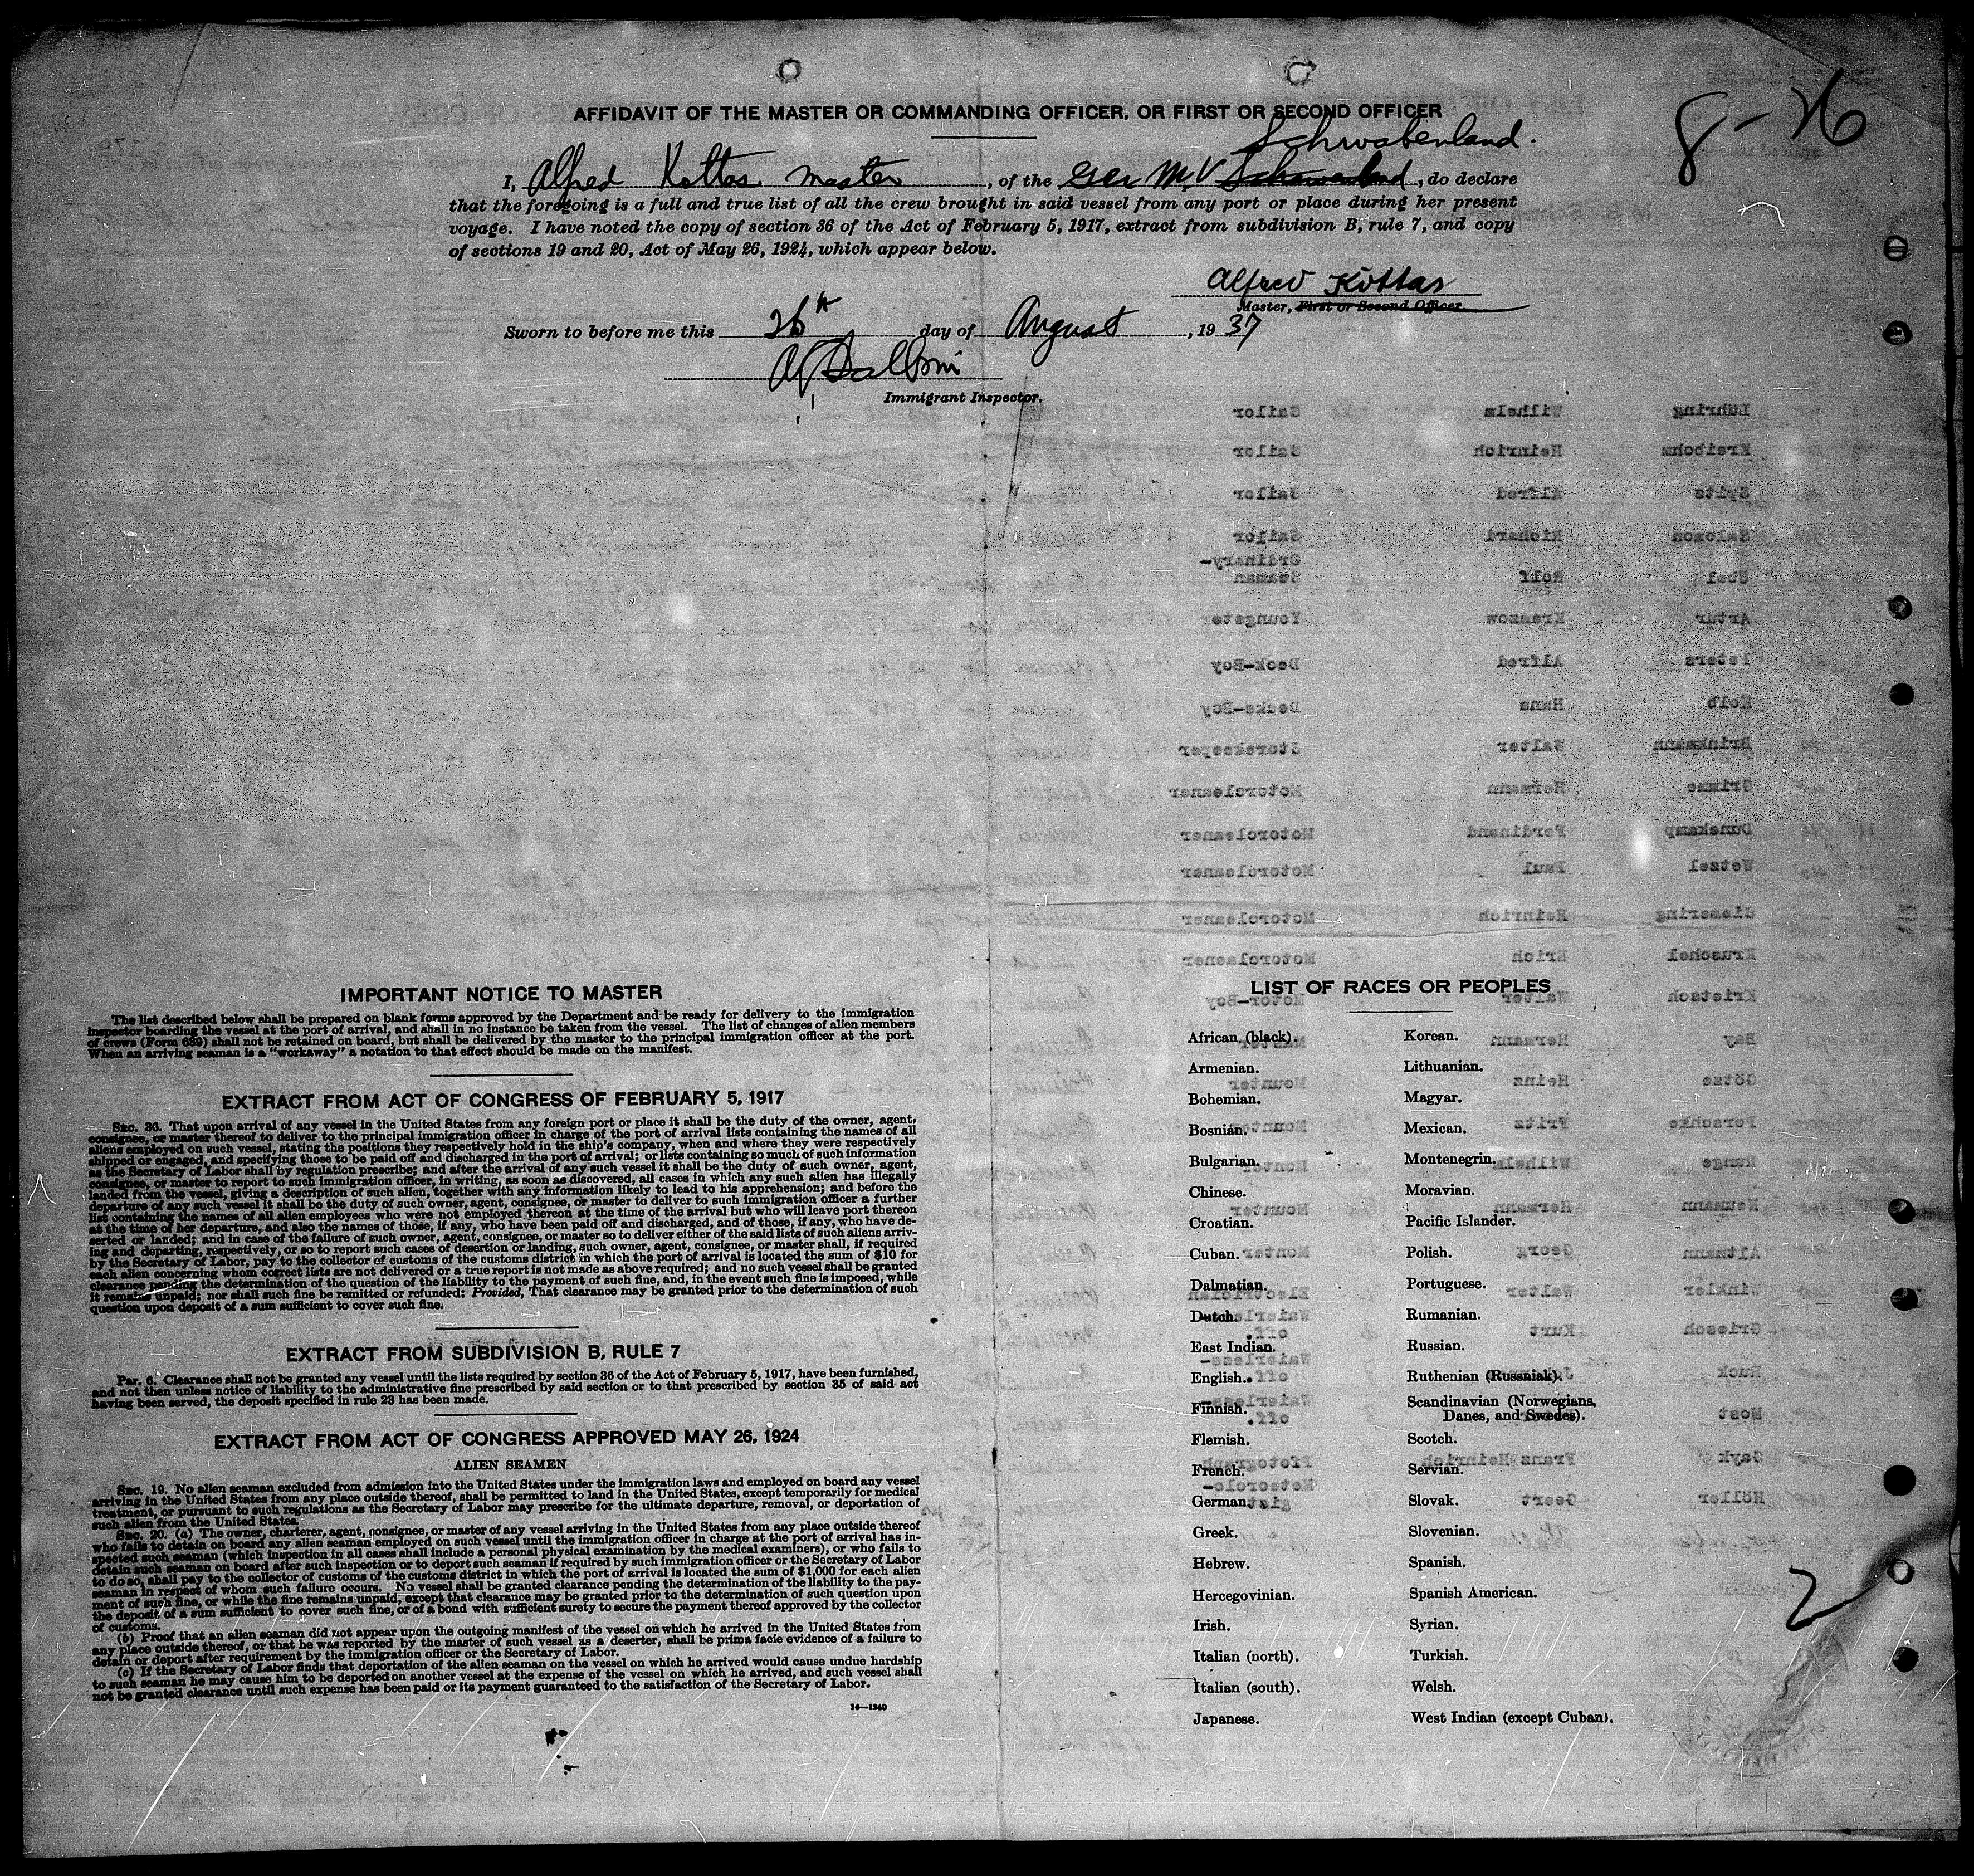 AFFIDAVIT OF THE MASTER OR COMMANDING OFFICER, OR FIRST OR SECOND OFFICER
8-26
Schwabenland.
I, Alfred Kottas master, of the Ger M.V, do declare
that the foregoing is a full and true list of all the crew brought in said vessel from any port or place during her present
voyage. I have noted the copy of section 36 of the Act of February 5, 1917, extract from subdivision B, rule 7, and copy
of sections 19 and 20, Act of May 26, 1924, which appear below.
Alfred Kottas
Master, First or Second Officer.
Sworn to before me this 26th day of August, 1937
Immigrant Inspector.
Lühring Wilhelm Sailor
Kreibohm Heinrich Sailor
Spitz Alfred Sailor
Salomon Richard Sailor
Ordinary-
Übel Rolf Seaman
Artur Kremzow Youngster
Peters Alfred Deck-Boy
Kolb Hans Decks-Boy
Brinkmann Walter Storekeeper
Grimme Hermann Motorcleaner
Dunekamp Ferdinand Motorcleaner
Wetzel Paul Motorcleaner
Siemering Heinrich Motorcleaner
Kruschel Erich Motorcleaner
Kristsch Walter Motor-Boy
Bay Hermann
Götze Heinz Mounter
Perschke Fritz Mounter
Runge Wilhelm Monter
Neumann Hermann Mounter
Altmann Georg Monter
Winkler Walter Electrician
Griesch Kurt
Ruck
Most
Gayk Franz Heinrich
Höller Geert
IMPORTANT NOTICE TO MASTER
The list described below shall be prepared on blank forms approved by the Department and be ready for delivery to the immigration
inspector boarding the vessel at the port of arrival, and shall in no instance be taken from the vessel. The list of changes of alien members
of crews (Form 689) shall not be retained on board, but shall be delivered by the master to the principal immigration officer at the port.
When an arriving seaman is a "workaway" a notation to that effect should be made on the manifest.
EXTRACT FROM ACT OF CONGRESS OF FEBRUARY 5, 1917
SEC. 36. That upon arrival of any vessel in the United States from any foreign port or place it shall be the duty of the owner, agent,
consignee, or master thereof to deliver to the principal immigration officer in charge of the port of arrival lists containing the names of all
aliens employed on such vessel, stating the positions they respectively hold in the ship's company, when and where they were respectively
shipped or engaged, and specifying those to be paid off and discharged in the port of arrival; or lists containing so much of such information
as the Secretary of Labor shall by regulation prescribe; and after the arrival of any such vessel it shall be the duty of such owner, agent,
consignee, or master to report to such immigration officer, in writing, as soon as discovered, all cases in which any such alien has illegally
landed from the vessel, giving a description of such alien, together with any information likely to lead to his apprehension; and before the
departure of any such vessel it shall be the duty of such owner, agent, consignee, or master to deliver to such immigration officer a further
list containing the names of all alien employees who were not employed thereon at the time of the arrival but who will leave port thereon
at the time of her departure, and also the names of those, if any, who have been paid off and discharged, and of those, if any, who have de-
serted or landed; and in case of the failure of such owner, agent, consignee, or master so to deliver either of the said lists of such aliens arriv-
ing and departing, respectively, or so to report such cases of desertion or landing, such owner, agent, consignee, or master shall, if required
by the Secretary of Labor, pay to the collector of customs of the customs district in which the port of arrival is located the sum of $10 for
each alien concerning whom correct lists are not delivered or a true report is not made as above required; and no such vessel shall be granted
clearance pending the determination of the question of the liability to the payment of such fine, and, in the event such fine is imposed, while
it remains unpaid; nor shall such fine be remitted or refunded: Provided, That clearance may be granted prior to the determination of such
question upon deposit of a sum sufficient to cover such fine.
EXTRACT FROM SUBDIVISION B, RULE 7
Par. 6. Clearance shall not be granted any vessel until the lists required by section 36 of the Act of February 5, 1917, have been furnished,
and not then unless notice of liability to the administrative fine prescribed by said section or to that prescribed by section 35 of said act
having been served, the deposit specified in rule 23 has been made.
EXTRACT FROM ACT OF CONGRESS APPROVED MAY 26, 1924
ALIEN SEAMEN
SEC. 19. No alien seaman excluded from admission into the United States under the immigration laws and employed on board any vessel
arriving in the United States from any place outside thereof, shall be permitted to land in the United States, except temporarily for medical
treatment, or pursuant to such regulations as the Secretary of Labor may prescribe for the ultimate departure, removal, or deportation of
such alien from the United States.
SEC. 20. (a) The owner, charterer, agent, consignee, or master of any vessel arriving in the United States from any place outside thereof
who fails to detain on board any alien seaman employed on such vessel until the immigration officer in charge at the port of arrival has in-
spected such seaman (which inspection in all cases shall include a personal physical examination by the medical examiners), or who fails to
detain such seaman on board after such inspection or to deport such seaman if required by such immigration officer or the Secretary of Labor
to do so, shall pay to the collector of customs of the customs district in which the port of arrival is located the sum of $1,000 for each alien
seaman in respect of whom such failure occurs. No vessel shall be granted clearance pending the determination of the liability to the pay-
ment of such fine, or while the fine remains unpaid, except that clearance may be granted prior to the determination of such question upon
the deposit of a sum sufficient to cover such fine, or of a bond with sufficient surety to secure the payment thereof approved by the collector
of customs.
(b) Proof that an alien seaman did not appear upon the outgoing manifest of the vessel on which he arrived in the United States from
any place outside thereof, or that he was reported by the master of such vessel as a deserter, shall be prima facie evidence of a failure to
detain or deport after requirement by the immigration officer or the Secretary of Labor.
(c) If the Secretary of Labor finds that deportation of the alien seaman on the vessel on which he arrived would cause undue hardship
to such seaman he may cause him to be deported on another vessel at the expense of the vessel on which he arrived, and such vessel shall
not be granted clearance until such expense has been paid or its payment guaranteed to the satisfaction of the Secretary of Labor.
14—1240
LIST OF RACES OR PEOPLES
African (black).
Armenian.
Bohemian.
Bosnian.
Bulgarian.
Chinese.
Croatian.
Cuban.
Dalmatian.
Dutch.
East Indian.
English.
Finnish.
Flemish.
French.
German.
Greek.
Hebrew.
Hercegovinian.
Irish.
Italian (north).
Italian (south).
Japanese.
Korean.
Lithuanian.
Magyar.
Mexican.
Montenegrin.
Moravian.
Pacific Islander.
Polish.
Portuguese.
Rumanian.
Russian.
Ruthenian (Russniak).
Scandinavian (Norwegians,
Danes, and Swedes).
Scotch.
Servian.
Slovak.
Slovenian.
Spanish.
Spanish American.
Syrian.
Turkish.
Welsh.
West Indian (except Cuban).
2